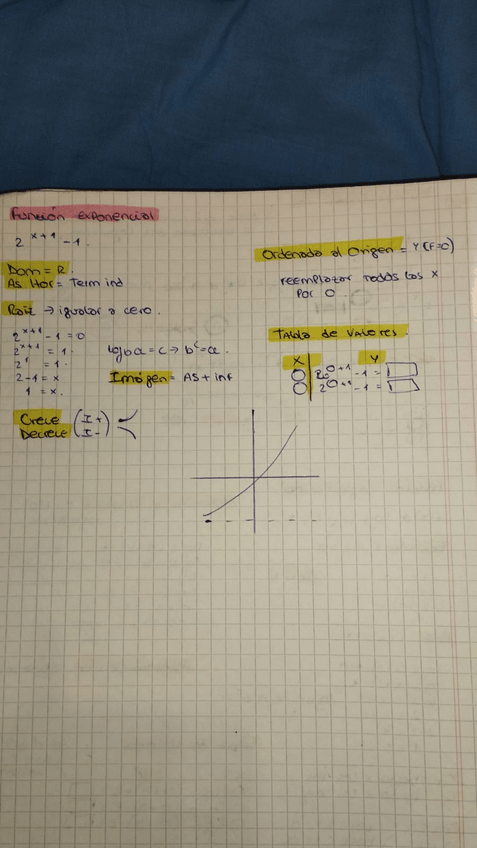 Función exponencial
2^x+1 - 1.
Dom = R.
As Hor = Term ind
Raiz → igualar a cero.
2^x+1 - 1 = 0
2^x+1 = 1.
2^1 = 1.
2 - 1 = x
1 = x.
log b a = c → b^c = a.
Imágen = AS + inf
Crece (I+)
Decrece (I-)
Ordenada al Origen = Y (F=0)
reemplazar todas las x
por 0
Tabla de valores.
X Y
2^0+1 - 1 =
2^0+1 - 1 =